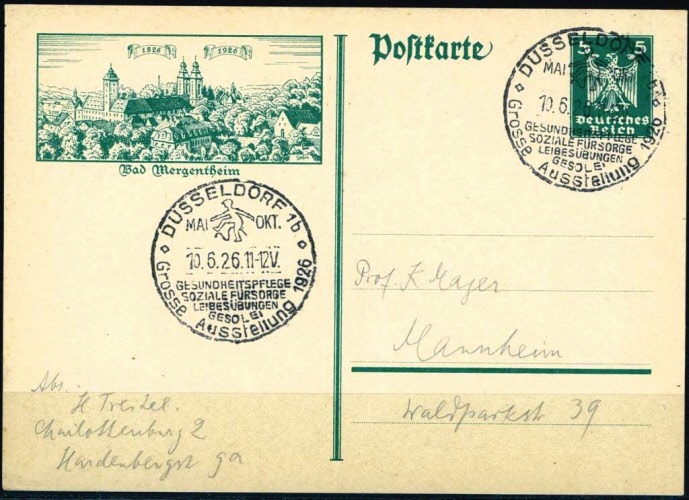 1826 1926
Bad Mergentheim
Postkarte
5 5
Deutsches
Reich
DÜSSELDORF 1b
MAI
10.6.26
GESUNDHEITSPFLEGE
SOZIALE FÜRSORGE
LEIBESÜBUNGEN
GESOLEI
Grosse Ausstellung 1926
DÜSSELDORF 1b
MAI OKT.
10.6.26.11-12V.
GESUNDHEITSPFLEGE
SOZIALE FÜRSORGE
LEIBESÜBUNGEN
GESOLEI
Grosse Ausstellung 1926
Prof. K Mager
Mannheim
Waldparkstr 39
Abs.
H Treitel.
Charlottenburg 2
Hardenbergst 9a